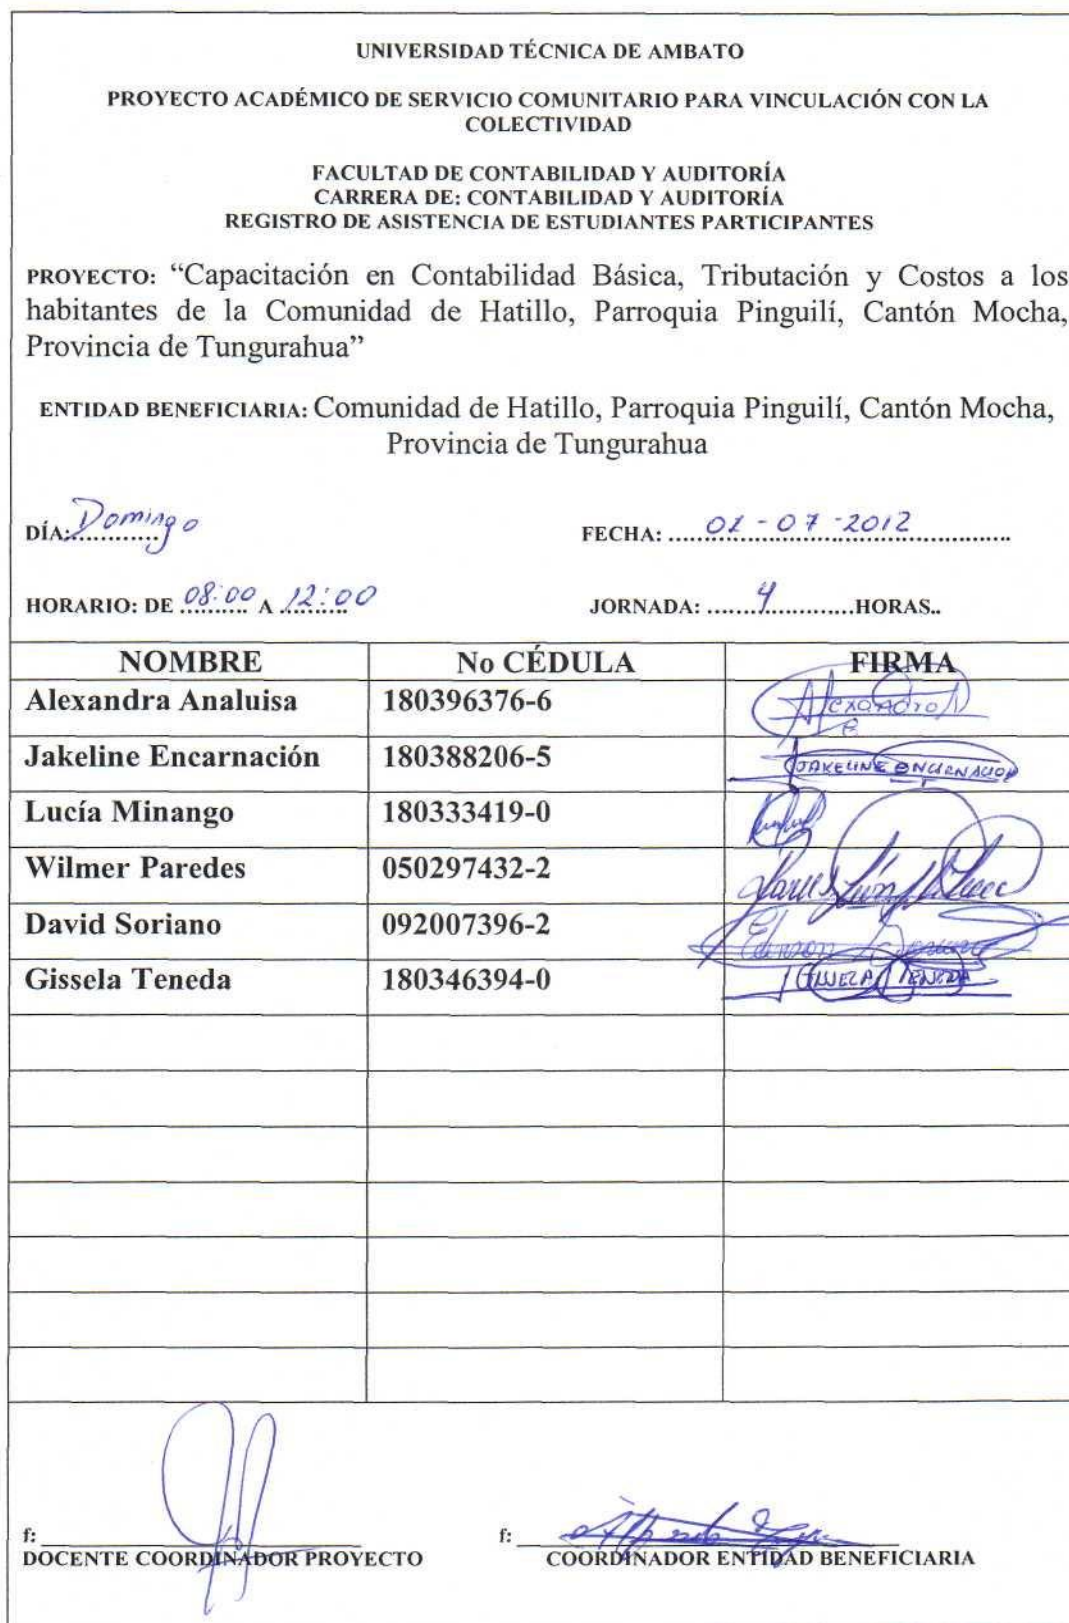 UNIVERSIDAD TÉCNICA DE AMBATO
PROYECTO ACADÉMICO DE SERVICIO COMUNITARIO PARA VINCULACIÓN CON LA
COLECTIVIDAD
FACULTAD DE CONTABILIDAD Y AUDITORÍA
CARRERA DE: CONTABILIDAD Y AUDITORÍA
REGISTRO DE ASISTENCIA DE ESTUDIANTES PARTICIPANTES
PROYECTO: “Capacitación en Contabilidad Básica, Tributación y Costos a los
habitantes de la Comunidad de Hatillo, Parroquia Pinguilí, Cantón Mocha,
Provincia de Tungurahua”
ENTIDAD BENEFICIARIA: Comunidad de Hatillo, Parroquia Pinguilí, Cantón Mocha,
Provincia de Tungurahua
DÍA: Domingo FECHA: 01-07-2012
HORARIO: DE 08:00 A 12:00 JORNADA: 4 HORAS..
NOMBRE No CÉDULA FIRMA
Alexandra Analuisa 180396376-6 Alexandra
Jakeline Encarnación 180388206-5 JAKELINE ENCARNACION
Lucía Minango 180333419-0
Wilmer Paredes 050297432-2
David Soriano 092007396-2
Gissela Teneda 180346394-0 GISSELA TENEDA
f: f:
DOCENTE COORDINADOR PROYECTO COORDINADOR ENTIDAD BENEFICIARIA